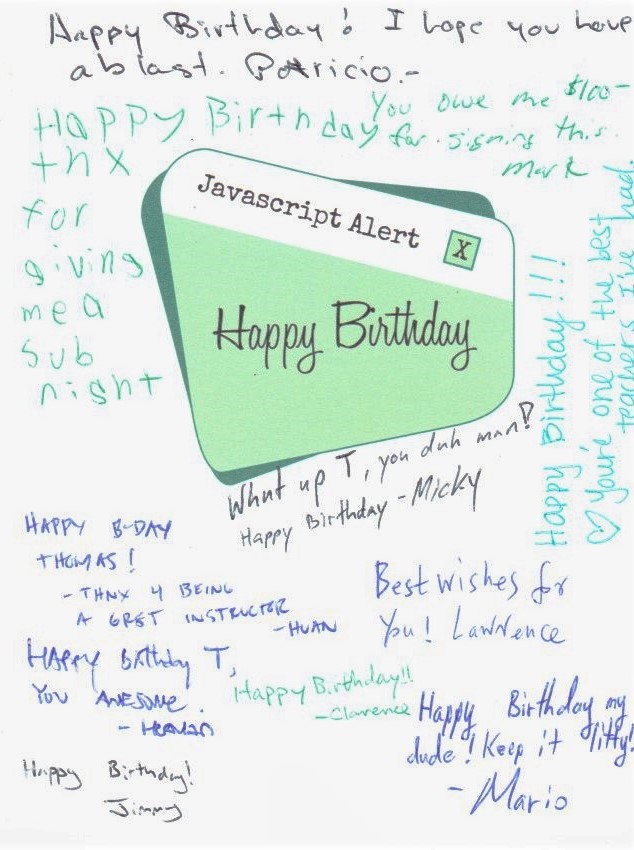 Happy Birthday! I hope you have
a blast. Patricio.-
Happy Birthday
thx
for
giving
me a
sub
night
You owe me $100-
for signing this.
Mark
Javascript Alert
X
Happy Birthday
Happy Birthday!!!
♡ You're one of the best
teachers I've had.
What up T, you duh man!
Happy Birthday - Micky
HAPPY B-DAY
THOMAS!
- THNX 4 BEING
A GRET INSTRUCTOR
- HUAN
Best wishes for
You! Lawrence
HAPPY Birthday T,
YOU AWESOME.
- HERNAN
Happy Birthday!!
- Clarence
Happy Birthday my
dude! Keep it litty!
- Mario
Happy Birthday!
Jimmy